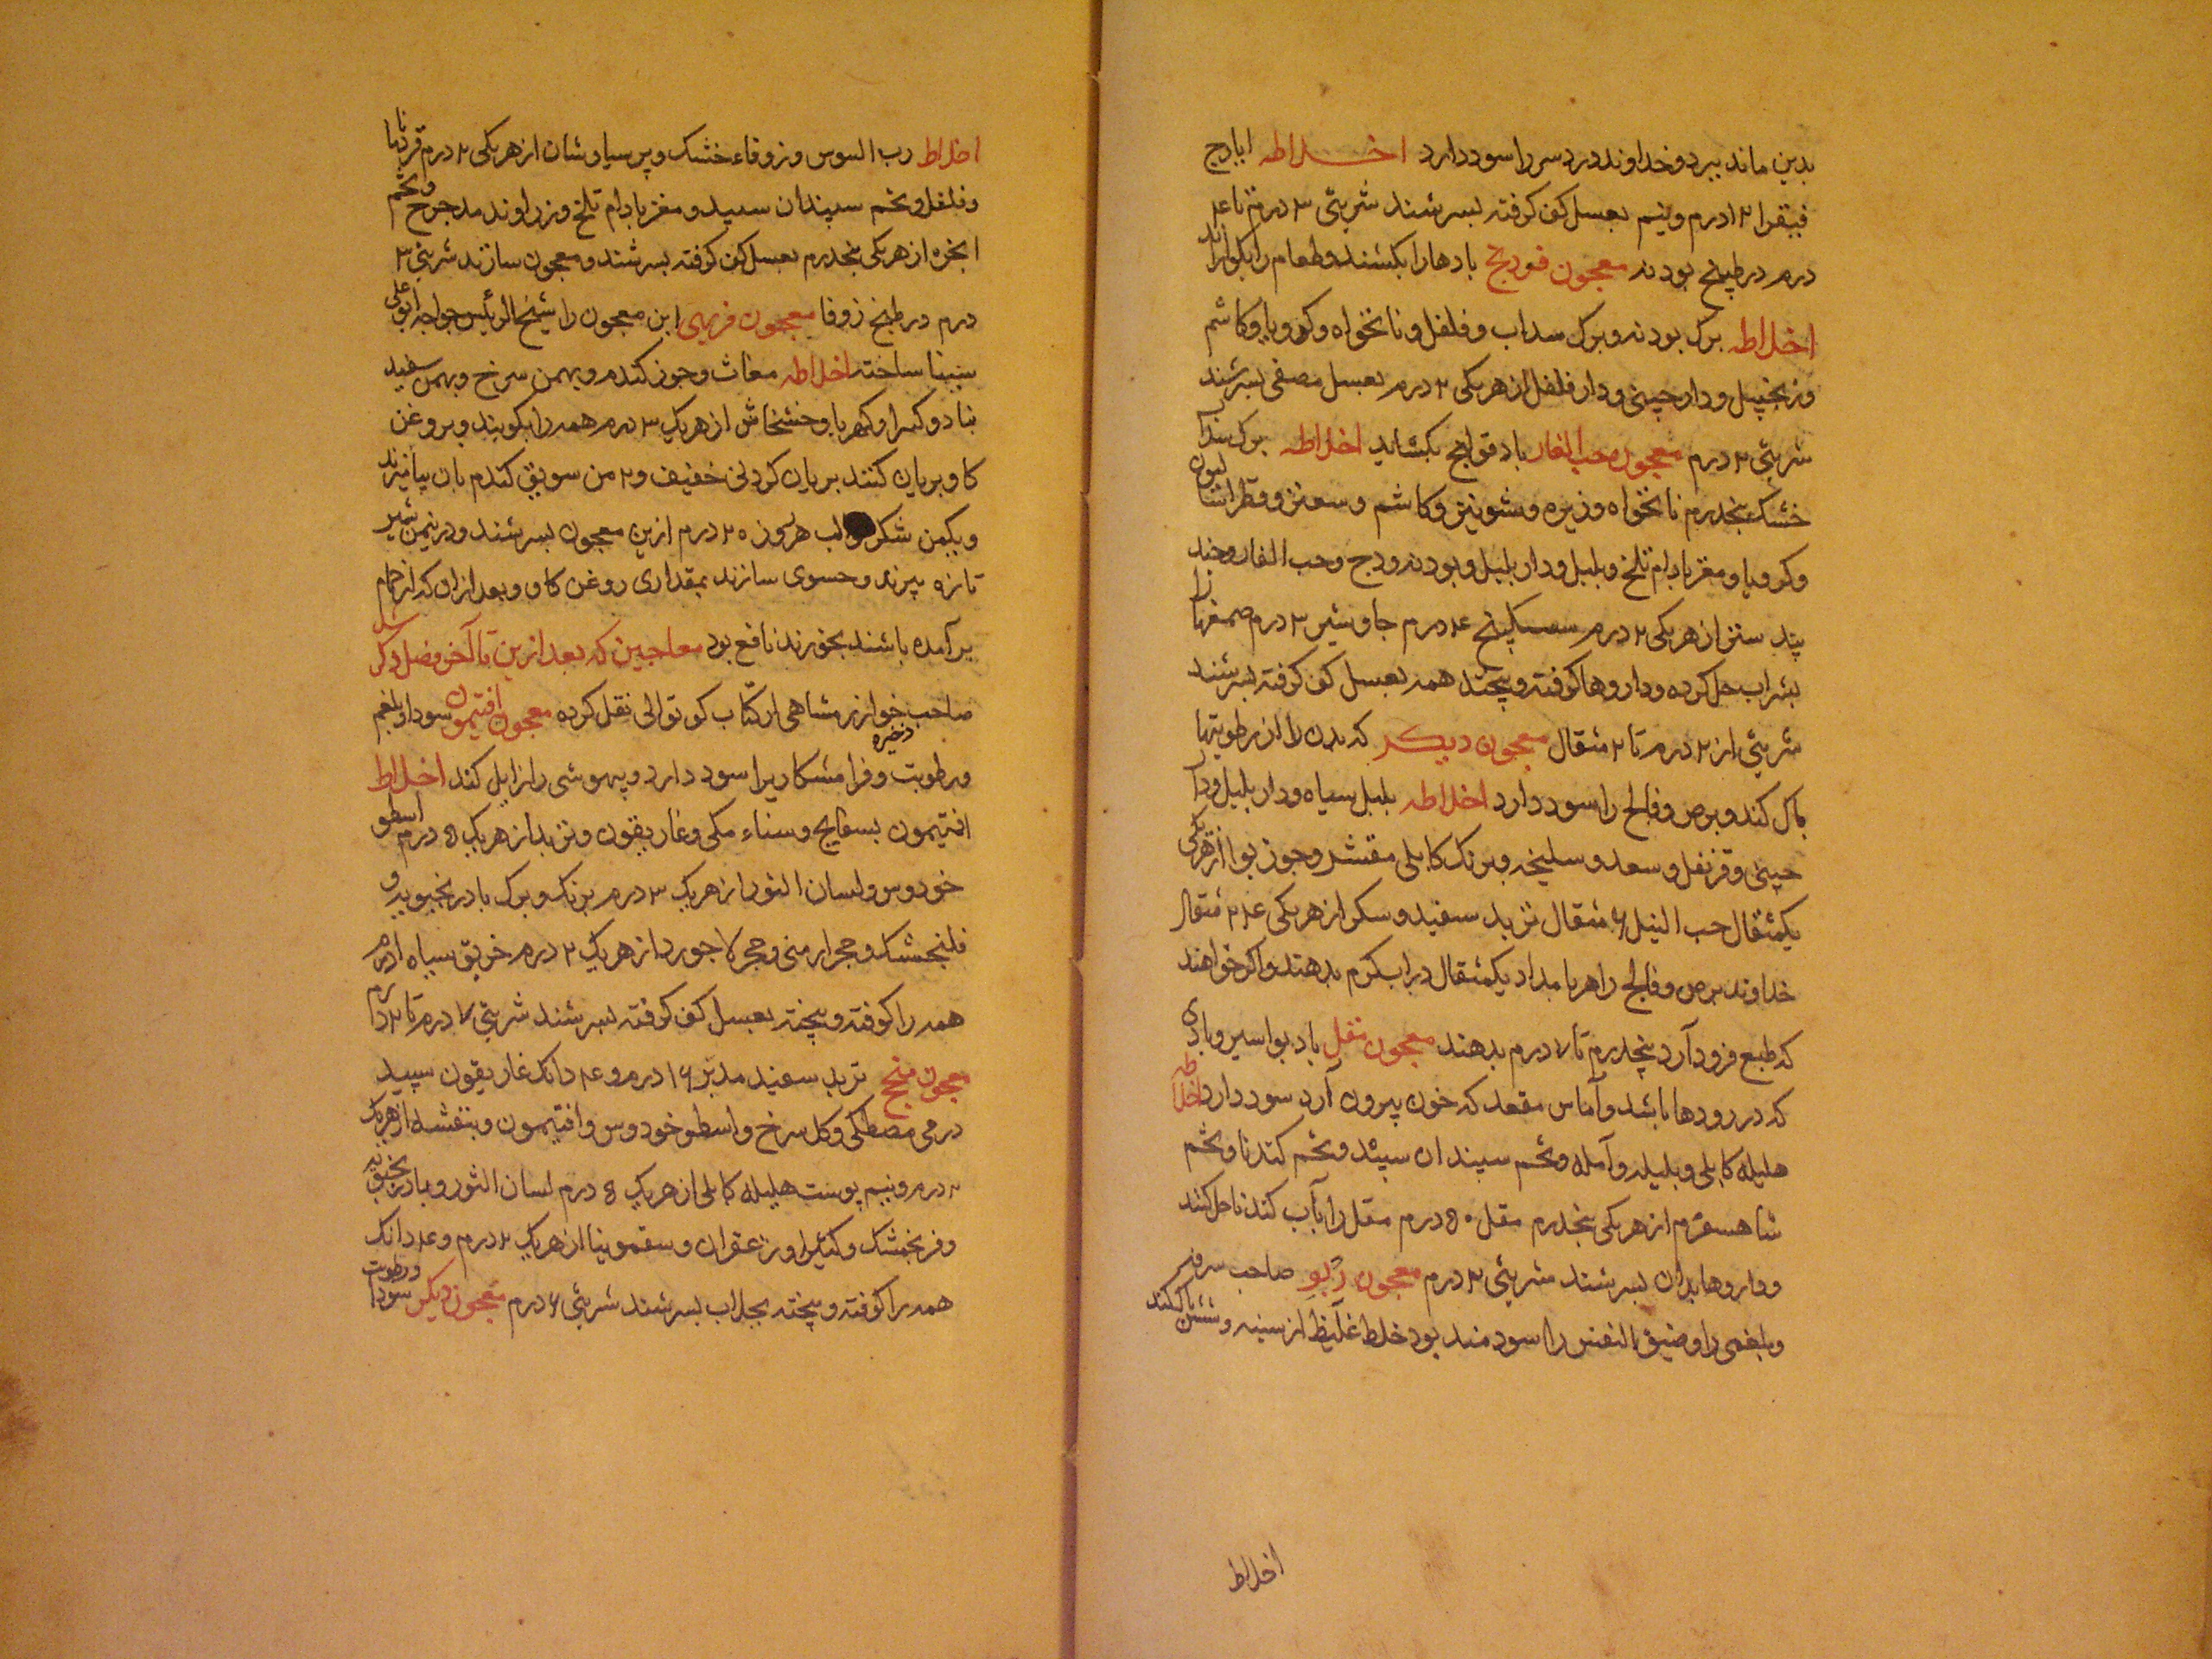 بدین ماند ببرد و خداوند درد سر را سود دارد اخلاطه ایارج
فیقرا ۱۲ درم و نیم بعسل کف کرفته بسرشند شربتی ۳ درم تا ۴
درم در طبیخ بودنه معجون فودنج بادها را بکشند و طعام را بکوارند
اخلاطه برک بودنه و برک سداب و فلفل و نانخواه و کرویا و کاشم
و زنجبیل و دارچینی و دار فلفل از هر یکی ۲ درم بعسل مصفی بسرشند
شربتی ۲ درم معجون حب الغار باد قولنج بکشاید اخلاطه برک سداب
خشک پنجدرم نانخواه و زیره و شونیز و کاشم و سعتر و قطراسالیون
و کرویا و مغز بادام تلخ و بلبل و دار بلبل و بودنه و وج و حب الغار و جند
بیدستر از هر یکی ۲ درم سکبینج ۴ درم جاوشیر ۳ درم صمغها را
بشراب حل کرده و داروها کوفته و بیخته همه بعسل کف کرفته بسرشند
شربتی از ۲ درم تا ۲ مثقال معجون دیکر که بدن را از رطوبتها
پاک کند و برص و فالج را سود دارد اخلاطه بلبل سیاه و دار بلبل و دار
چینی و قرنفل و سعد و سلیخه و برنک کابلی مقشر و جوز بوا از هر یکی
یکمثقال حب النیل ۶ مثقال تربد سفید و سکر از هر یکی ۲۴ مثقال
خداوند برص و فالج را هر بامداد یکمثقال در آب کرم بدهند و اکر خواهند
که طبع فرود آرد پنجدرم تا ۷ درم بدهند معجون مقل باد بواسیر و بادی
که در رودها باشد و آماس مقعد که خون بیرون آرد سود دارد اخلاطه
هلیله کابلی و بلیله و آمله و تخم سپندان سپید و تخم کندنا و تخم
شاهسفرم از هر یکی پنجدرم مقل ۵۰ درم مقل را بآب کندنا حل کنند
و داروها بدان بسرشند شربتی ۲ درم معجون ربو صاحب سرفه
و بلغمی را و ضیق النفس را سودمند بود خلط غلیظ از سینه و شش پاک کند
اخلاط
اخلاط رب السوس و زوفاء خشک و پرسیاوشان از هر یکی ۴ درم قردمانا
و فلفل و تخم سپندان سپید و مغز بادام تلخ و زراوند مدحرج و تخم
انجره از هر یکی پنجدرم بعسل کف کوفته بسرشند و معجون سازند شربتی ۳
درم در طبیخ زوفا معجون فربهی این معجون را شیخ الرئیس خواجه ابو علی
سینا ساخته اخلاطه مغاث و جوز کندم و بهمن سرخ و بهمن سفید
و کهربا و خشخاش از هر یک ۳ درم همه را بکوبند و بروغن
کاو بریان کنند بریان کردنی خفیف و ۲ من سویق کندم بان بیامیزند
و یکمن شکر هر روز ۲۰ درم ازین معجون بسرشند و در نیمن شیر
تازه بپزند و حسوی سازند بمقداری روغن کاو و بعد از ان که از حمام
بر آمده باشند بخورند نافع بود معاجین که بعد ازین تا آخر فصل ذکر شد
صاحب ذخیره خوارزمشاهی از کتاب نقل کرده معجون افتیمون سودا و بلغم
و رطوبت و فرامشکاریرا سود دارد و بیهوشی را زایل کند اخلاط
افتیمون بسفایج و سناء مکی و غاریقون و تربد از هر یک ۵ درم اسطو
خودوس و لسان الثور از هر یک ۳ درم برنک و برک بادرنجبویه و
فلنجمشک و حجر ارمنی و حجر لاجورد از هر یک ۲ درم خربق سیاه ۱ درم
همه را کوفته و بیخته بعسل کف کوفته بسرشند شربتی ۷ درم تا
معجون تربد سفید مدبر ۱۶ درم و ۴ دانک غاریقون سپید
درمی مصطکی و کل سرخ و اسطوخودوس و افتیمون و بنفشه از هر یک
۲ درم و نیم پوست هلیله کابلی از هر یک ۵ درم لسان الثور و بادرنجبویه
و فرنجمشک و کتیرا و زعفران و سقمونیا از هر یک ۲ درم و ۴ دانک
همه را کوفته و بیخته بجلاب بسرشند شربتی ۶ درم معجون دیکر سودا و رطوبت